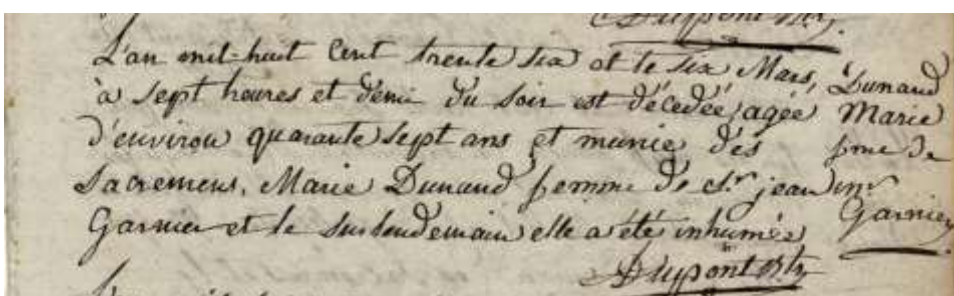 Dupont
L'an mil-huit cent trente six et le six Mars,
à sept heures et demi du soir est décedée, agée
d'environ quarante sept ans et munie des
sacremens, Marie Dunand femme de
Garnier et le surlendemain elle a été inhumée
Dunand
Marie
fme de
Garnier
Dupont